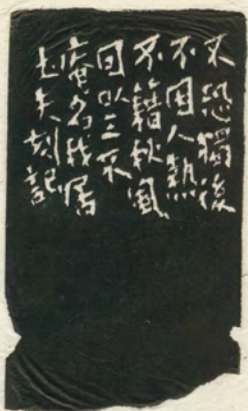 不恐獨後
不因人熱
不籍秋風
因以三不
庵名我屬
夫刻記